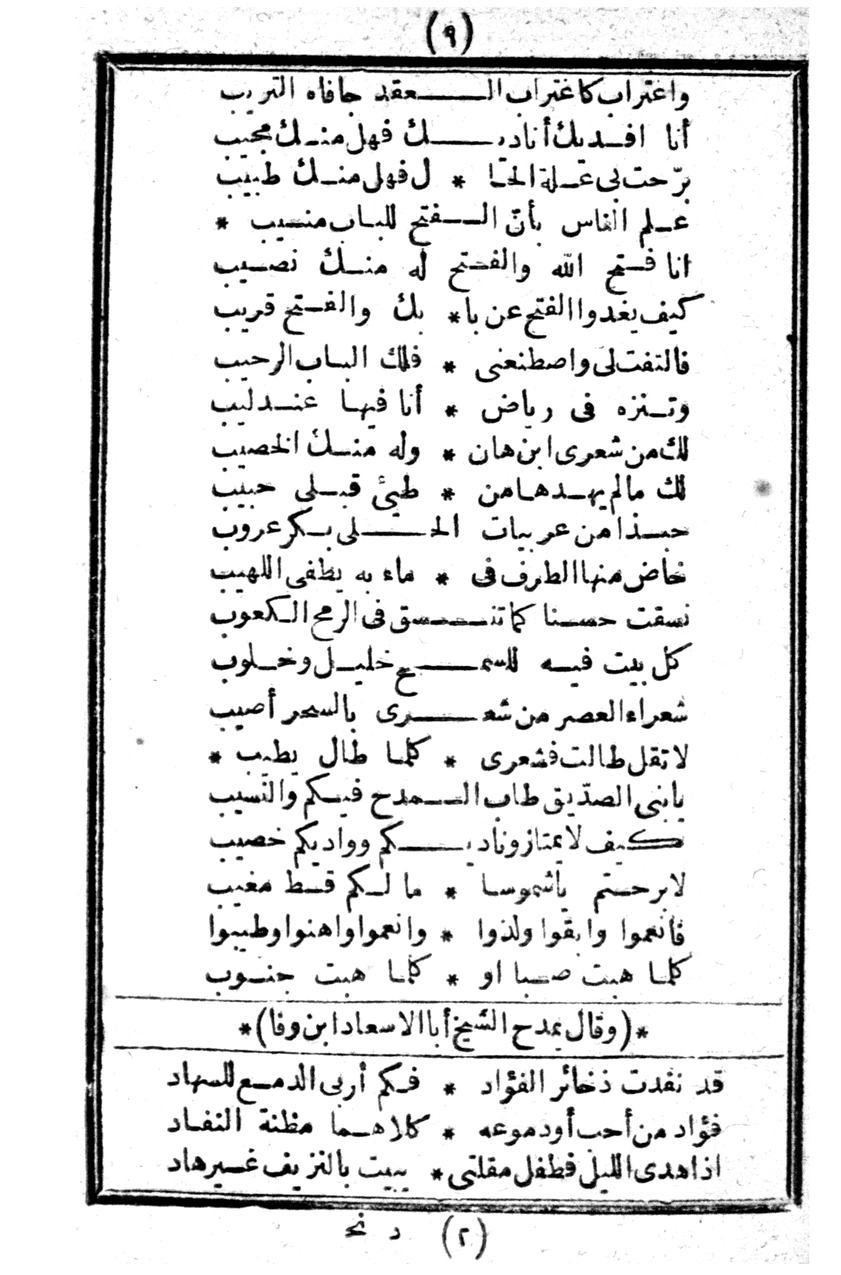 (٩)
واغتراب كاغتراب الـعقد جافاه التريب
أنا افديك أناديـك فهل منك مجيب
برّحت بى عـلة الحا * ل فهل منك طبيب
عـلم الناس بأنّ الـفتح للباب منسيب *
انا فتح الله والفتح له منك نصيب
كيف يغدوا الفتح عن با * بك والفتح قريب
فالتفت لى واصطنعنى * فلك الباب الرحيب
وتـنزه فى رياض * أنا فيها عندليب
لك من شعرى ابن هان * وله منك الخصيب
لك مالم يهدها من * طيئ قبلى حبيب
حبذا من عربيات الحـلى بكر عروب
خاض منها الطرف فى * ماء به يطفى اللهيب
نسقت حسنا كما تنـسق فى الرمح الكعوب
كل بيت فيه للسمـع خليل وخلوب
شعراء العصر من شعـرى بالسحر أصيب
لا تقل طالت فشعرى * كلما طال يطيب *
يابنى الصدّيق طاب الـمدح فيكم والنسيب
كيف لايمتاز وناديـكم وواديكم خصيب
لابرحتم ياشموسا * ما لكم قط مغيب
فانعموا وابقوا ولذوا * وانعموا واهنوا وطيبوا
كلما هبت صبا او * كلما هبت جنوب
*(وقال يمدح الشيخ أبا الاسعاد ابن وفا)*
قد نفدت ذخائر الفؤاد * فكم أربى الدمع للسهاد
فؤاد من أحب أودموعه * كلاهما مظنة النفاد
اذا هدى الليل فطفل مقلتى * يبيت بالنزيف غير هاد
(٢) د نح